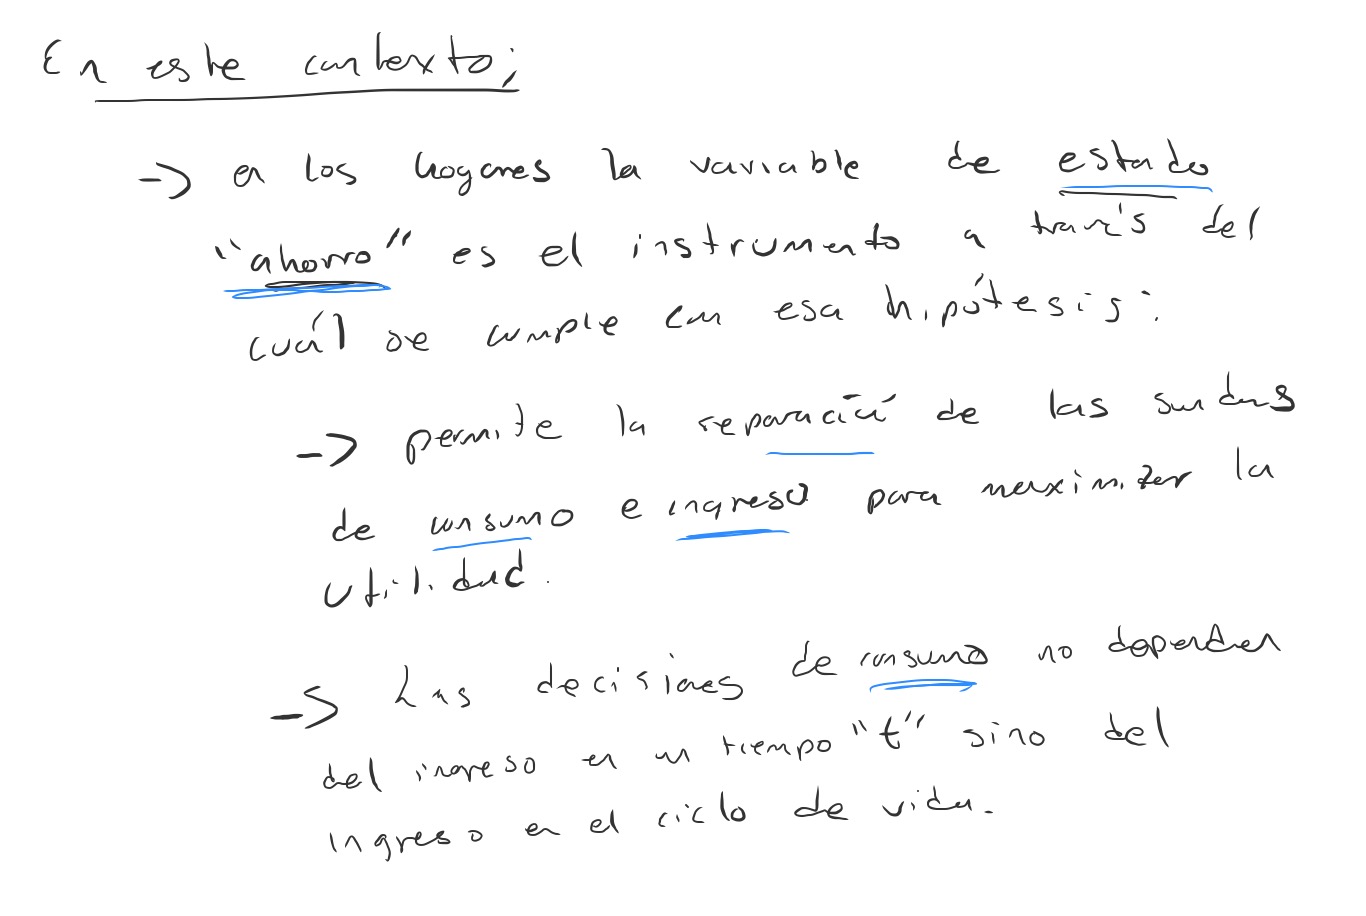 En este contexto;
-> en los hogares la variable de estado
"ahorro" es el instrumento a través del
cuál se cumple con esa hipótesis:
-> permite la separación de las sendas
de consumo e ingreso para maximizar la
utilidad.
-> Las decisiones de consumo no dependen
del ingreso en un tiempo "t" sino del
ingreso en el ciclo de vida.